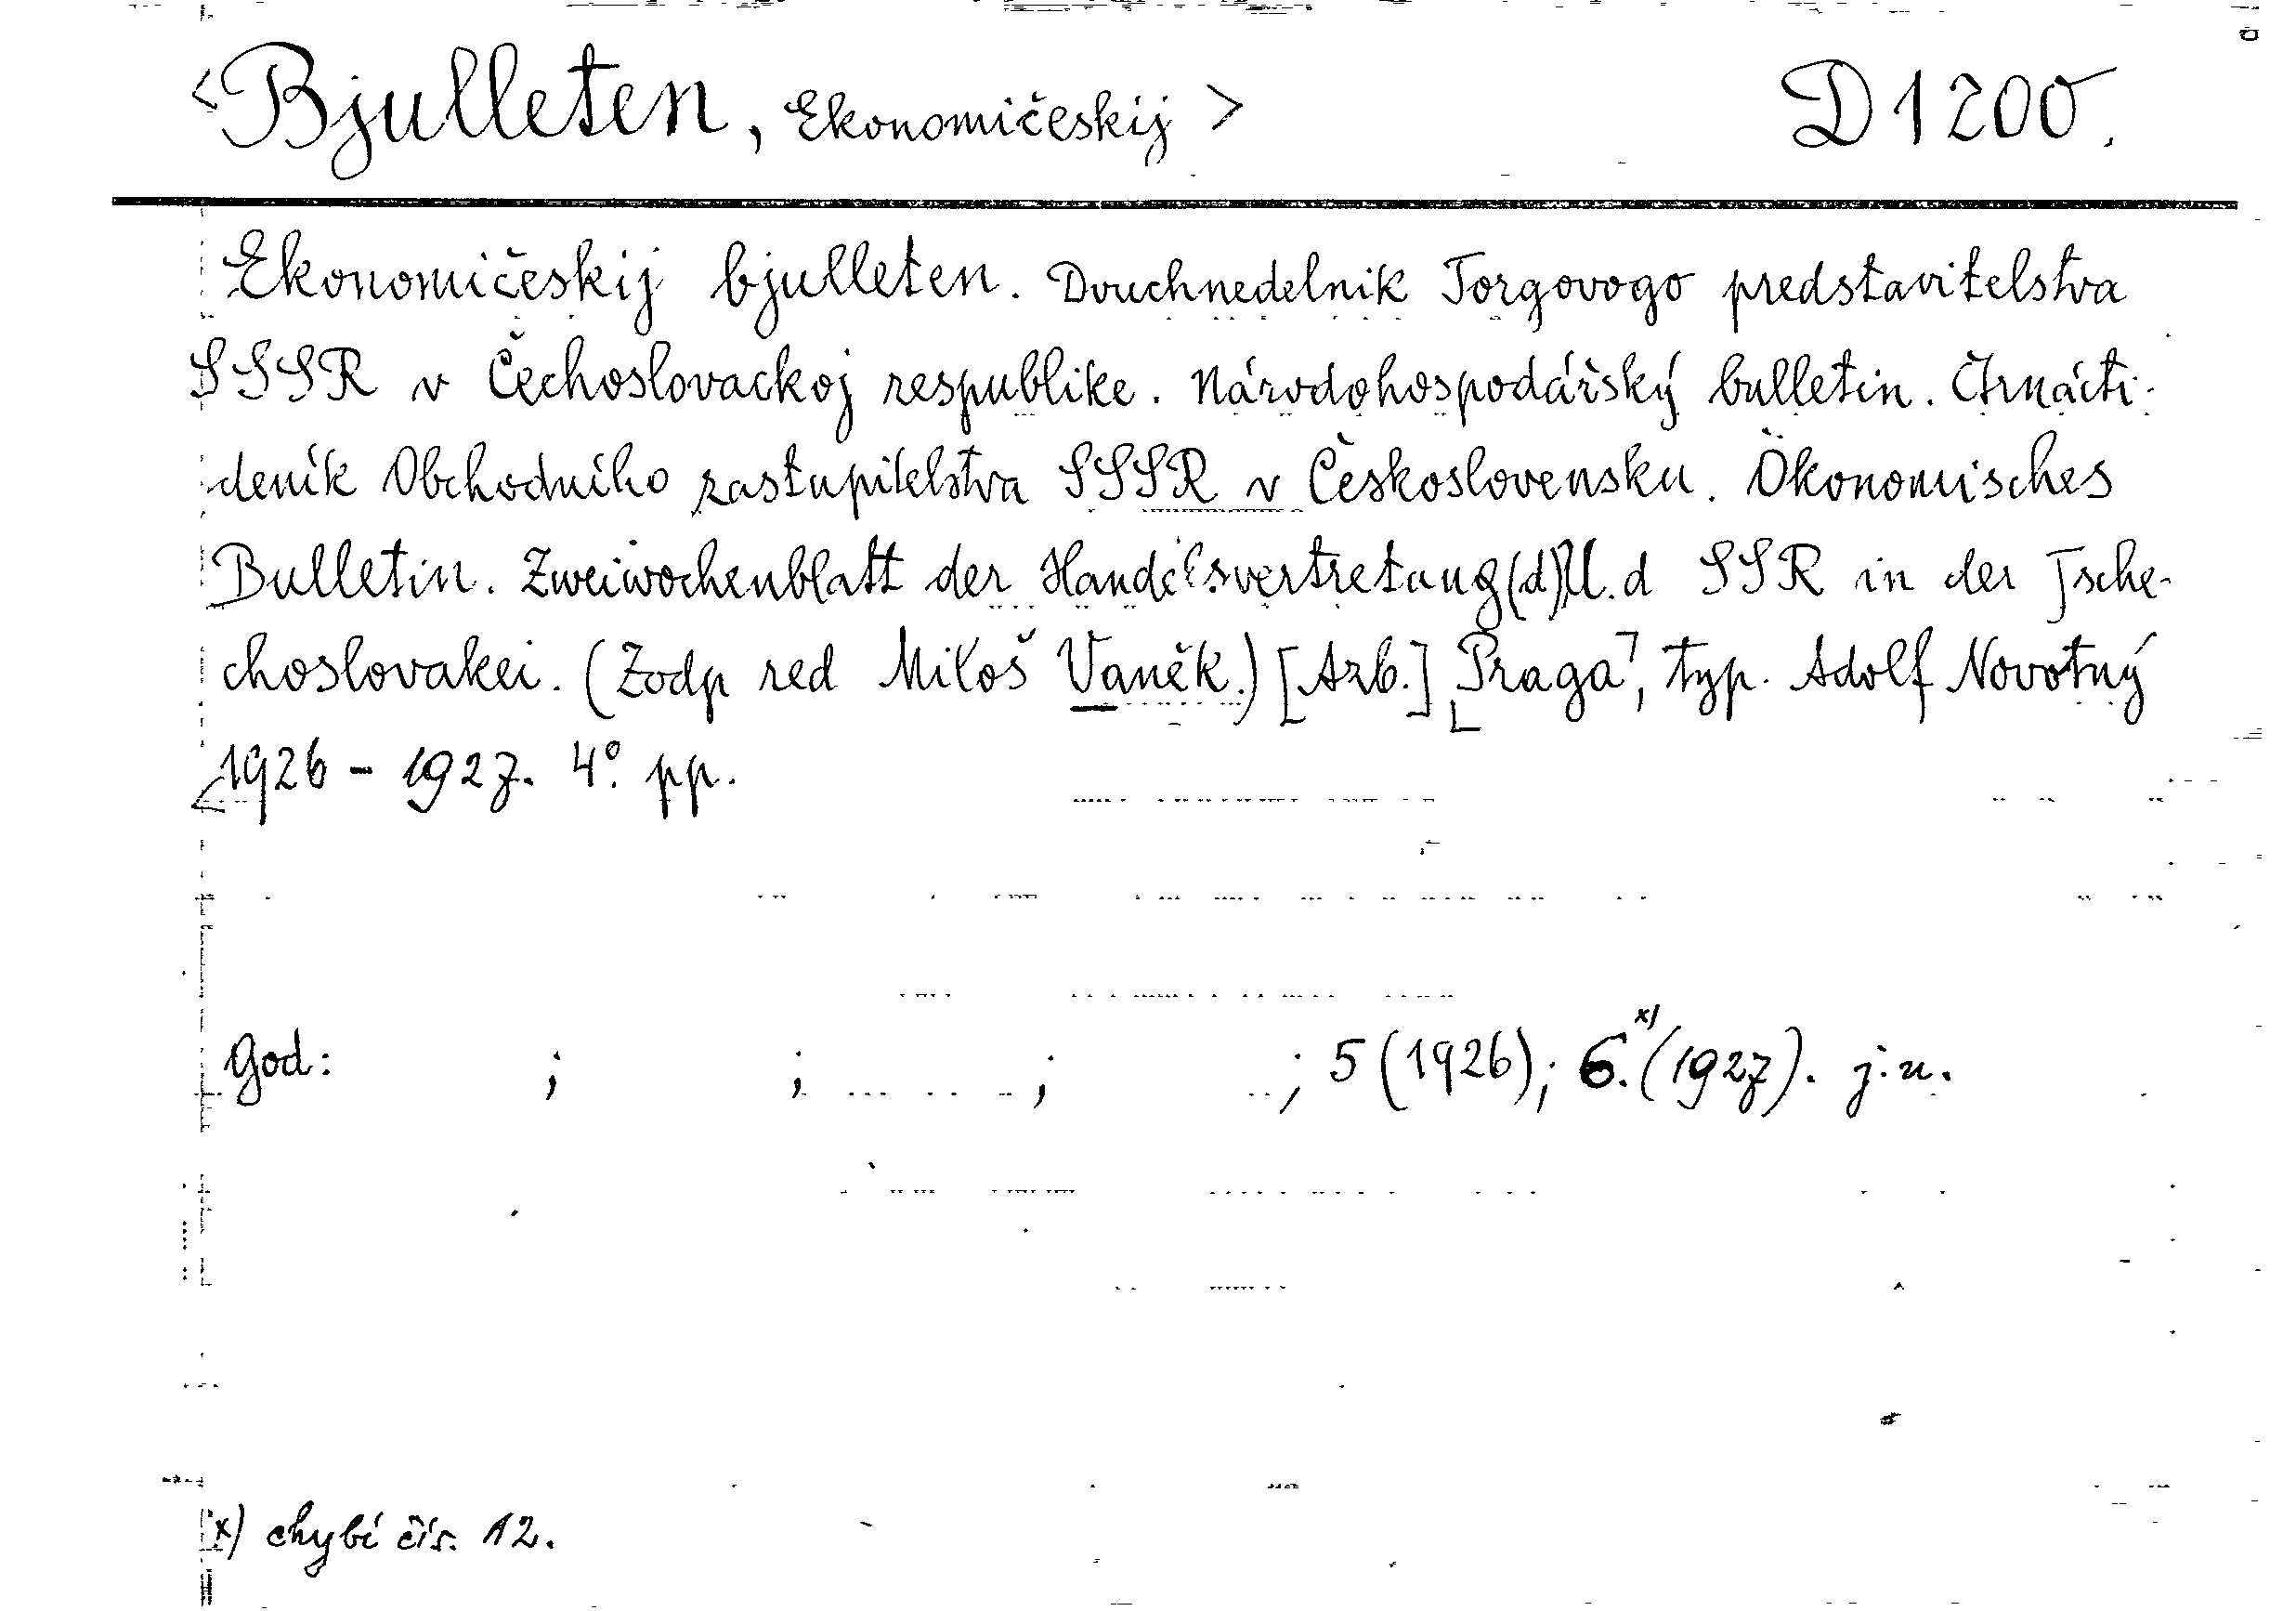 <Bjulleten, Ekonomičeskij> D 1200.
Ekonomičeskij bjulleten. Dvuchnedelnik Torgovogo predstavitelstva
SSSR v Čechoslovackoj respublike. Národohospodářský bulletin. Čtrnácti-
deník Obchodního zastupitelstva SSSR v Československu. Ökonomisches
Bulletin. Zweiwochenblatt der Handelsvertretung (d) U. d SSR in der Tsche-
choslovakei. (Zodp red Miloš Vaněk.) [Azb.] Praga, typ. Adolf Novotný
1926 - 1927. 4°. pp.
God: ; ; ; ; 5 (1926); 6.x) (1927). j. n.
x) chybí čís. 12.